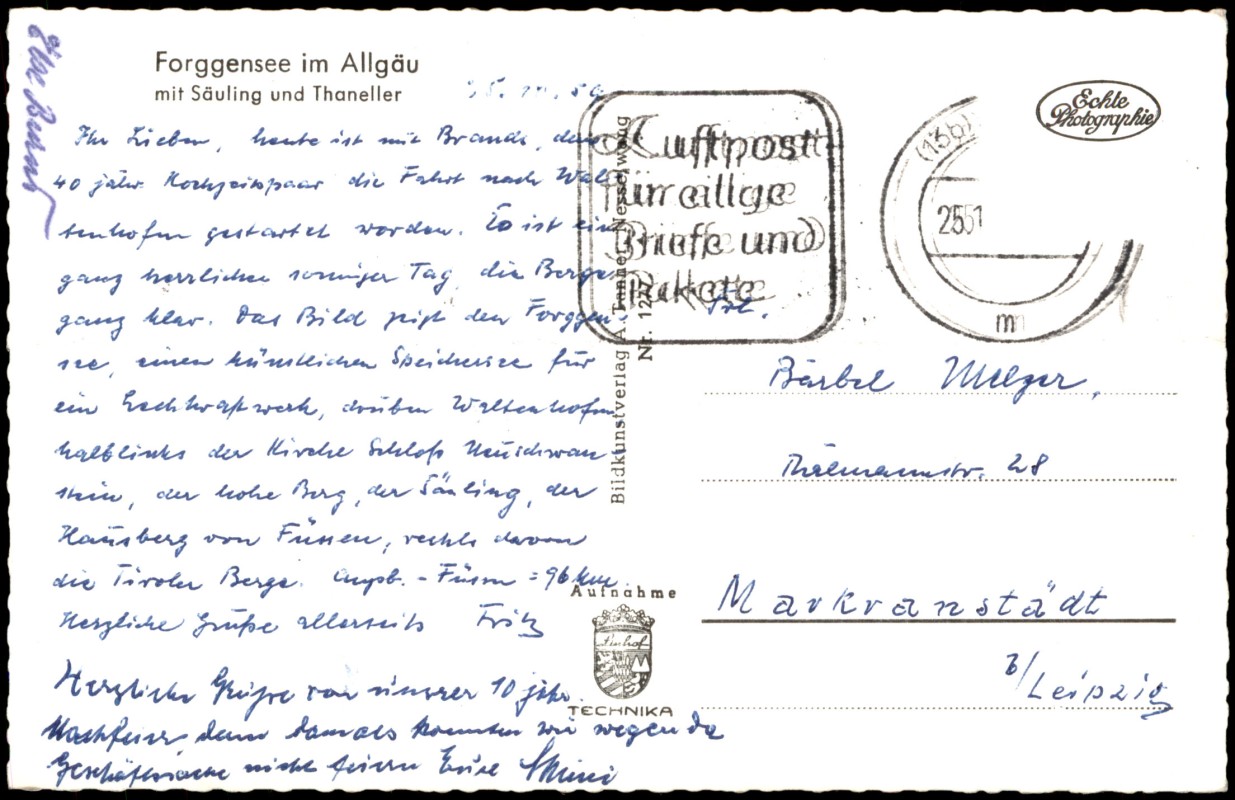 Forggensee im Allgäu
mit Säuling und Thaneller
Ihr Lieben, heute ist mit Brands, dem
40 jähr. Hochzeitspaar die Fahrt nach Wal-
tenhofen gestartet worden. Es ist ein
ganz herrlicher sonniger Tag, die Berge
ganz klar. Das Bild zeigt den Forggen-
see, einen künstlichen Speichersee für
ein Lechkraftwerk, drüben Waltenhofen
halblinks der Kirche Schloß Neuschwan
stein, der hohe Berg, der Säuling, der
Hausberg von Füssen, rechts davon
die Tiroler Berge. Augsb. - Füssen = 96 km.
Herzliche Grüße allerseits Fritz
Herzliche Grüße von unserer 10 jähr.
Nachfeier, denn damals konnten wir wegen da
Geschäftssache nicht feiern Eure
Luftpost
für eilige
Briefe und
Pakete
(13b)
Echte
Photographie
Bildkunstverlag A. Tanner, Nesselwang
Nr. 127
Aufnahme
TECHNIKA
Frl.
Bärbel Melzer,
Thälmannstr. 28
Markranstädt
b/Leipzig